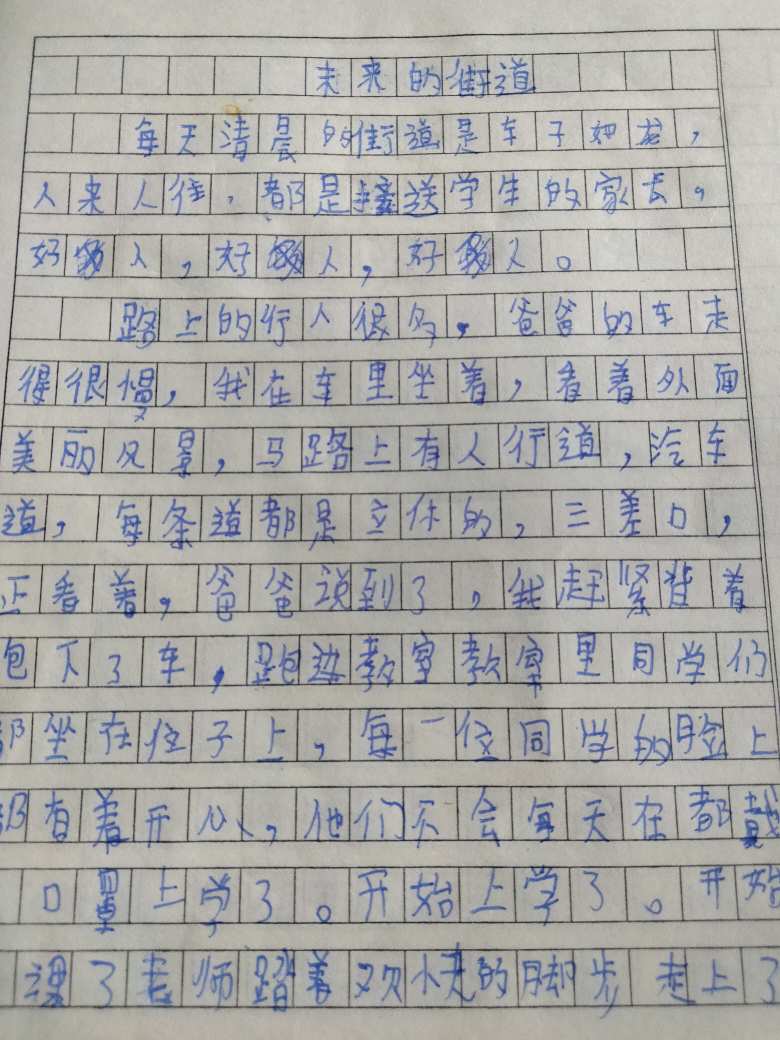 未来的街道
每天清晨的街道是车子如龙，
人来人往，都是接送学生的家长。
好多人，好多人，好多人。
路上的行人很多，爸爸的车走
得很慢，我在车里坐着，看着外面
美丽风景，马路上有人行道，汽车
道，每条道都是立体的，三差口，
正看着，爸爸说到了，我赶紧背着
包下了车，跑进教室教室里同学们
都坐在位子上，每一位同学的脸上
都有着开心，他们不会每天在都戴
口罩上学了。开始上学了。开始
课了老师踏着欢快的脚步走上了